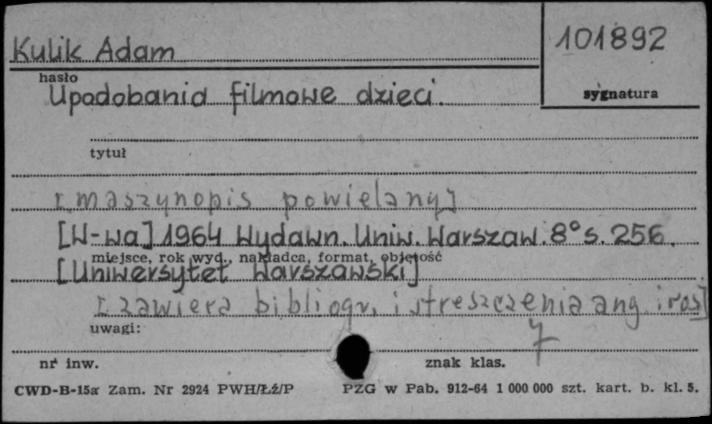 Kulik Adam
101892
hasło
sygnatura
Upodobania filmowe dzieci.
tytuł
[maszynopis powielany]
[W-wa] 1964 Wydawn. Uniw. Warszaw. 8° s. 256.
miejsce, rok wyd., nakładca, format, objętość
[Uniwersytet Warszawski]
[zawiera bibliogr, i streszczenia ang i ros]
uwagi:
7
nr inw.
znak klas.
CWD-B-15a Zam. Nr 2924 PWH/Łź/P PZG w Pab. 912-64 1 000 000 szt. kart. b. kl. 5.